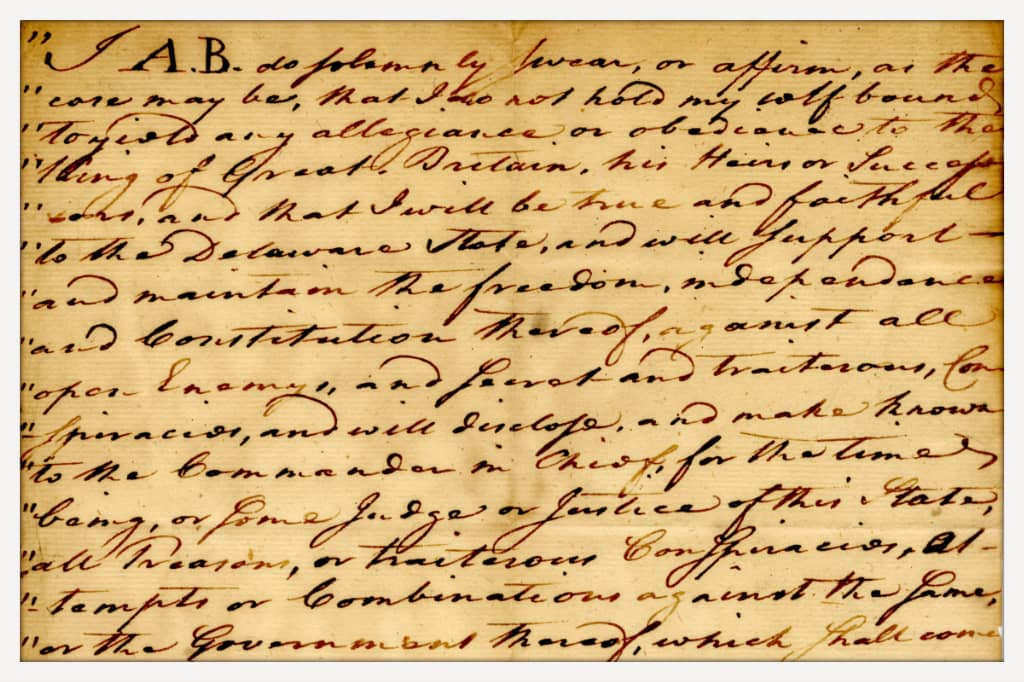 " I A.B. do solemnly swear, or affirm, as the
" case may be, that I do not hold my self bound
" to yield any allegiance or obedience to the
" King of Great Britain, his Heirs or Succes
" sors, and that I will be true and faithful
" to the Delaware State, and will support
" and maintain the freedom, independance
" and Constitution thereof, against all
" open Enemys, and secret and traiterous, Con
" spiracies, and will disclose, and make known
" to the Commander in Chief, for the time
" being, or some Judge or Justice of this State,
" all Treasons, or traiterous Conspiracies, at-
" tempts or Combinations against the same,
" or the Government thereof, which shall come